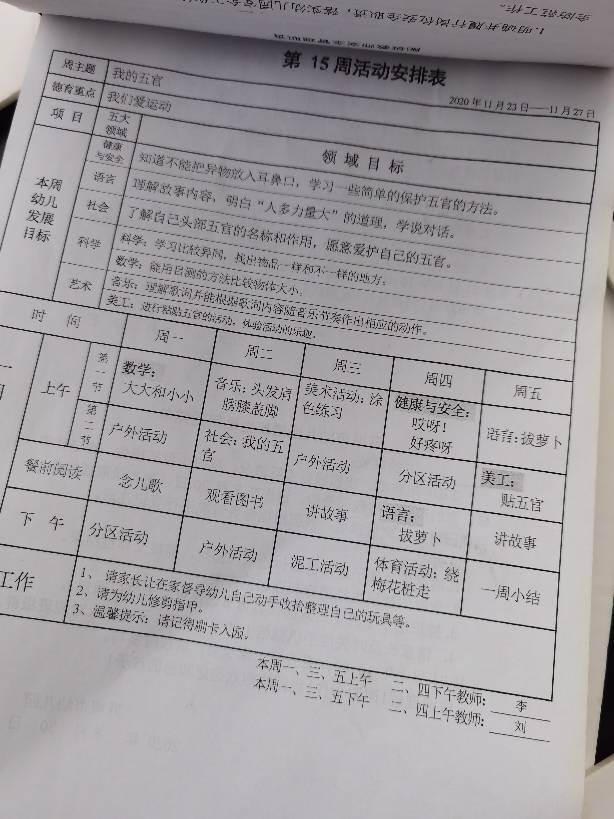 1.明确并履行岗位安全职责，落实幼儿园
全防范工作。
第 15 周活动安排表
2020 年 11 月 23 日——11 月 27 日
周主题 我的五官
德育重点 我们爱运动
项 目 五大领域 领 域 目 标
本周幼儿发展目标
健康与安全 知道不能把异物放入耳鼻口，学习一些简单的保护五官的方法。
语言 理解故事内容，明白“人多力量大”的道理，学说对话。
社会 了解自己头部五官的名称和作用，愿意爱护自己的五官。
科学 科学：学习比较异同，找出物品一样和不一样的地方。
数学：能用目测的方法比较物体大小。
艺术 音乐：理解歌词并能根据歌词内容随音乐节奏作出相应的动作。
美工：进行粘贴五官的活动，体验活动的乐趣。
时 间 周一 周二 周三 周四 周五
上午 第一节 数学：大大和小小 音乐：头发肩膀膝盖脚 美术活动：涂色练习 健康与安全：哎呀！好疼呀 语言：拔萝卜
第二节 户外活动 社会：我的五官 户外活动 分区活动 美工：贴五官
餐前阅读 念儿歌 观看图书 讲故事 语言：拔萝卜 讲故事
下 午 分区活动 户外活动 泥工活动 体育活动：绕梅花桩走 一周小结
工作
1、 请家长让在家督导幼儿自己动手收拾整理自己的玩具等。
2、 请为幼儿修剪指甲。
3、 温馨提示：请记得刷卡入园。
本周一、三、五上午 二、四下午教师： 李
本周一、三、五下午 二、四上午教师： 刘